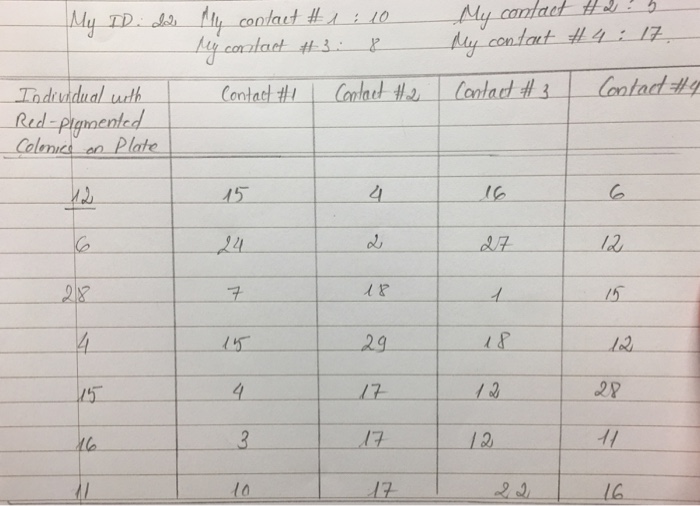 My ID: 22 My contact #1 : 10 My contact #2 : 5
My contact #3 : 8 My contact #4 : 17.
Individual with Contact #1 Contact #2 Contact #3 Contact #4
Red-pigmented
Colonies on Plate
12 15 4 16 6
6 24 2 27 12
28 7 18 1 15
4 15 29 18 12
15 4 17 12 28
16 3 17 12 11
11 10 17 22 16